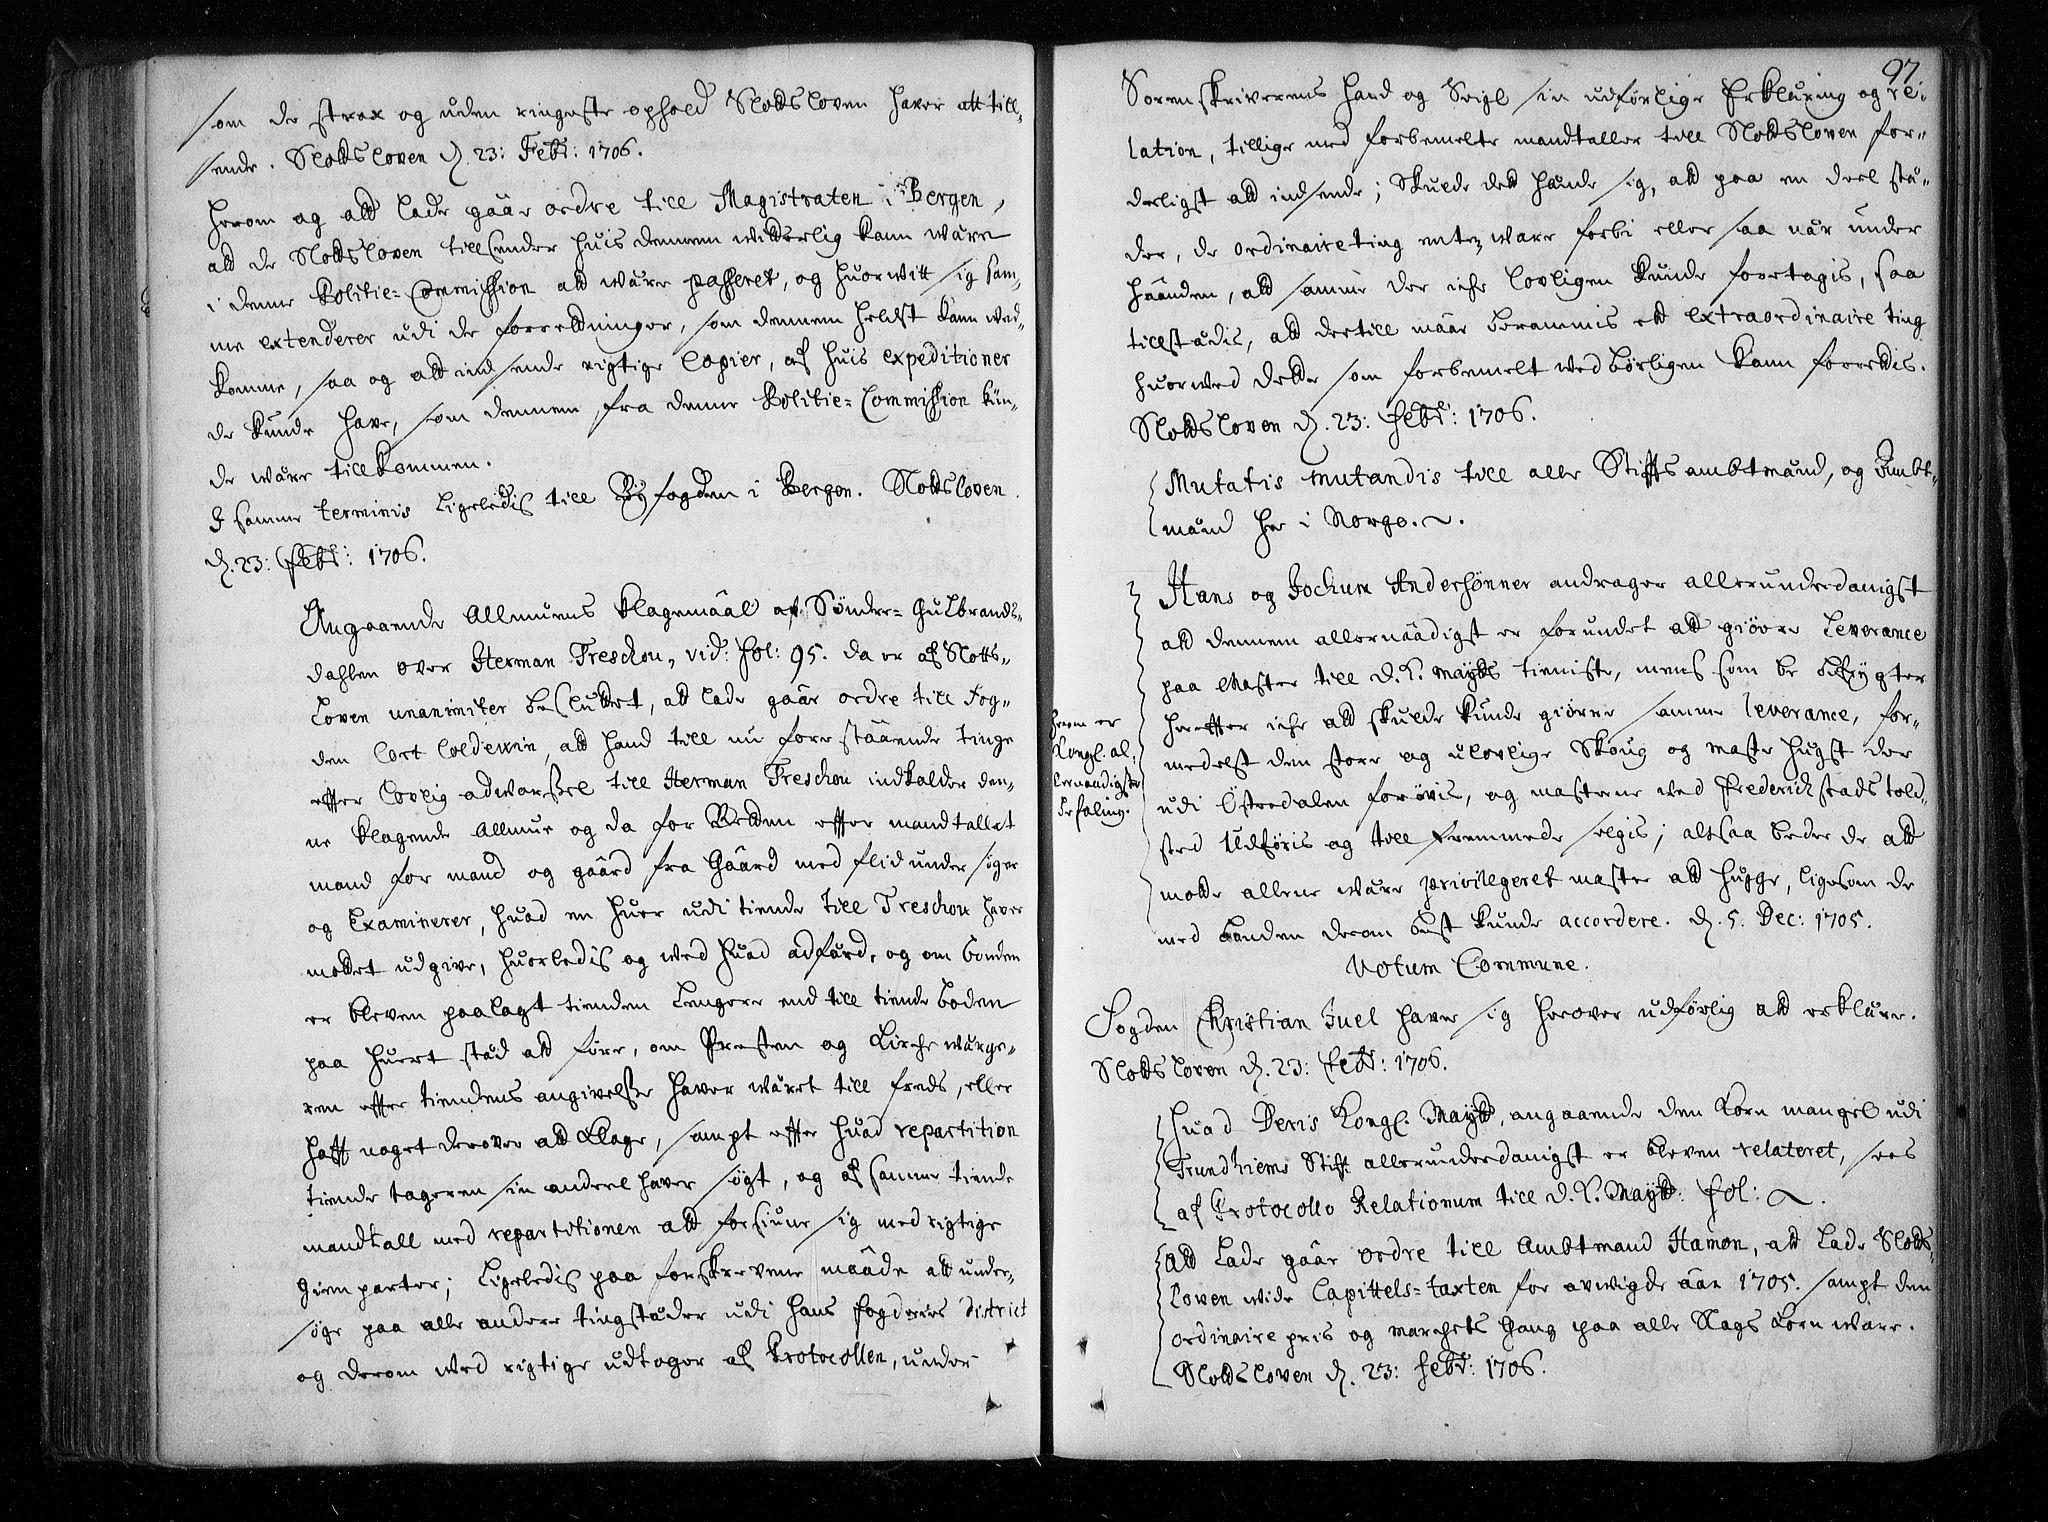 som de strax og uden ringeste ophold Slodsloven haver att till-
sende. Slodsloven d. 23: Febr: 1706.
herom og att lade gaär ordre till Magistraten i Bergen,
att de Slodsloven tillsender huis dennem witterlig kann wære
i denne Politie-Commission att wære passeret, og huorwitt sig sam-
me extenderer udi de forretninger, som dennem heldst kann wed-
komme, saa og att indsende rigtige Copier, af huis expeditioner
de kunde have, som dennem fra denne Politie-Commission kun-
de wære tillkommen.
I samme terminis Ligeledis till Byfogden i Bergen. Slodsloven
d. 23: Febr: 1706.
Angaaende Allmuens Klagemåäl af Sønder-Gulbrands-
dahlen over Herman Treschou, vid: fol: 95. da er af Slotts-
Loven unanimiter besluttet, att lade gaär ordre till Fog-
den Cort Coldewin, att hand till nu forestaäende tinge
effter Lovlig adwarßel till Herman Treschou indkalder den-
ne klagende Allmue og da for Retten effter mandtallet
mand for mand og gaärd fra Gaärd med flid undersøger
og Examinerer, huad en huer udi tiende till Treschou haver
mottet udgive, huorledis og wed huad adfærd, og om bonden
er bleven paalagt tienden Lengere end till tiende boden
paa huert stæd att føre, om Presten og Kirchewærge-
ren effter tiendens angivelße haver wæret till freds, eller
hafft noget derover att Klage, sampt effter huad repartition
tiende tageren sin andeel haver søgt, og af samme tiende
mandtall med repartitionen att forsiune sig med rigtige
Gienparter; Ligeledis paa forskrevene maäde att under-
søge paa alle andere tingstæder udi hans fogderies district
og derom wed rigtige udtoger af Protocollen, under
97.
Sorenskriverens haand og Seigl sin udførlige Erklæring og re-
lation, tillige med forbemelte mandtaller till Slodsloven for-
derligst att indsende; Skulde dett hænde sig, att paa en deel stæ-
der, de ordinaire ting enten ware forbi eller saa nær under
haänden, att samme der iche lovligen kunde foretagis, saa
tillstædis, att dertill maär berammis ett extraordinaire ting
huorwed dette som forbemelt wed børligen kann forrettis.
Slodsloven d. 23: Febr: 1706.
Mutatis mutandis till alle Stiffts ambtmænd, og Ambt-
mænd her i Norge.
Hans og Jochum Andersønner andrager allerunderdanigst
att dennem allernaädigst er forundet att giøre Leverance
paa Master till D. K. Maytts tieniste, mens som be befrygter
hereffter iche att skulde kunde giørre samme leverance, for-
medelst den store og ulovlige Skoug og maste hugst der
udi Østredalen forøvis, og masterne wed Frederichstads told-
sted Udføris og till fremmede selgis; altsaa beder de att
motte allene wære privilegeret master att hugge, ligesom de
med bonden derom best kunde accordere. d. 5. Dec: 1705.
herom er
Kongl. al,
lernaadigste
befaling.
Votum Commune.
Fogden Christian Juel haver sig herover udførlig att erklære.
Slodsloven d. 23: Febr: 1706.
Huad Deris Kongl. Maytt, angaaende den Korn mangel udi
Trundhiems Stift allerunderdanigst er bleven relateret, sees
af Protocollo Relationum till D. K. Maytt. fol:
Att Lade gaär ordre till Ambtmand Hamon, att Lade Slods-
Loven wide Capittels-taxten for avwigde aär 1705. sampt den
ordinaire pris og marchets Gang paa alle Slags Korn ware.
Slodsloven d. 23: Febr: 1706.